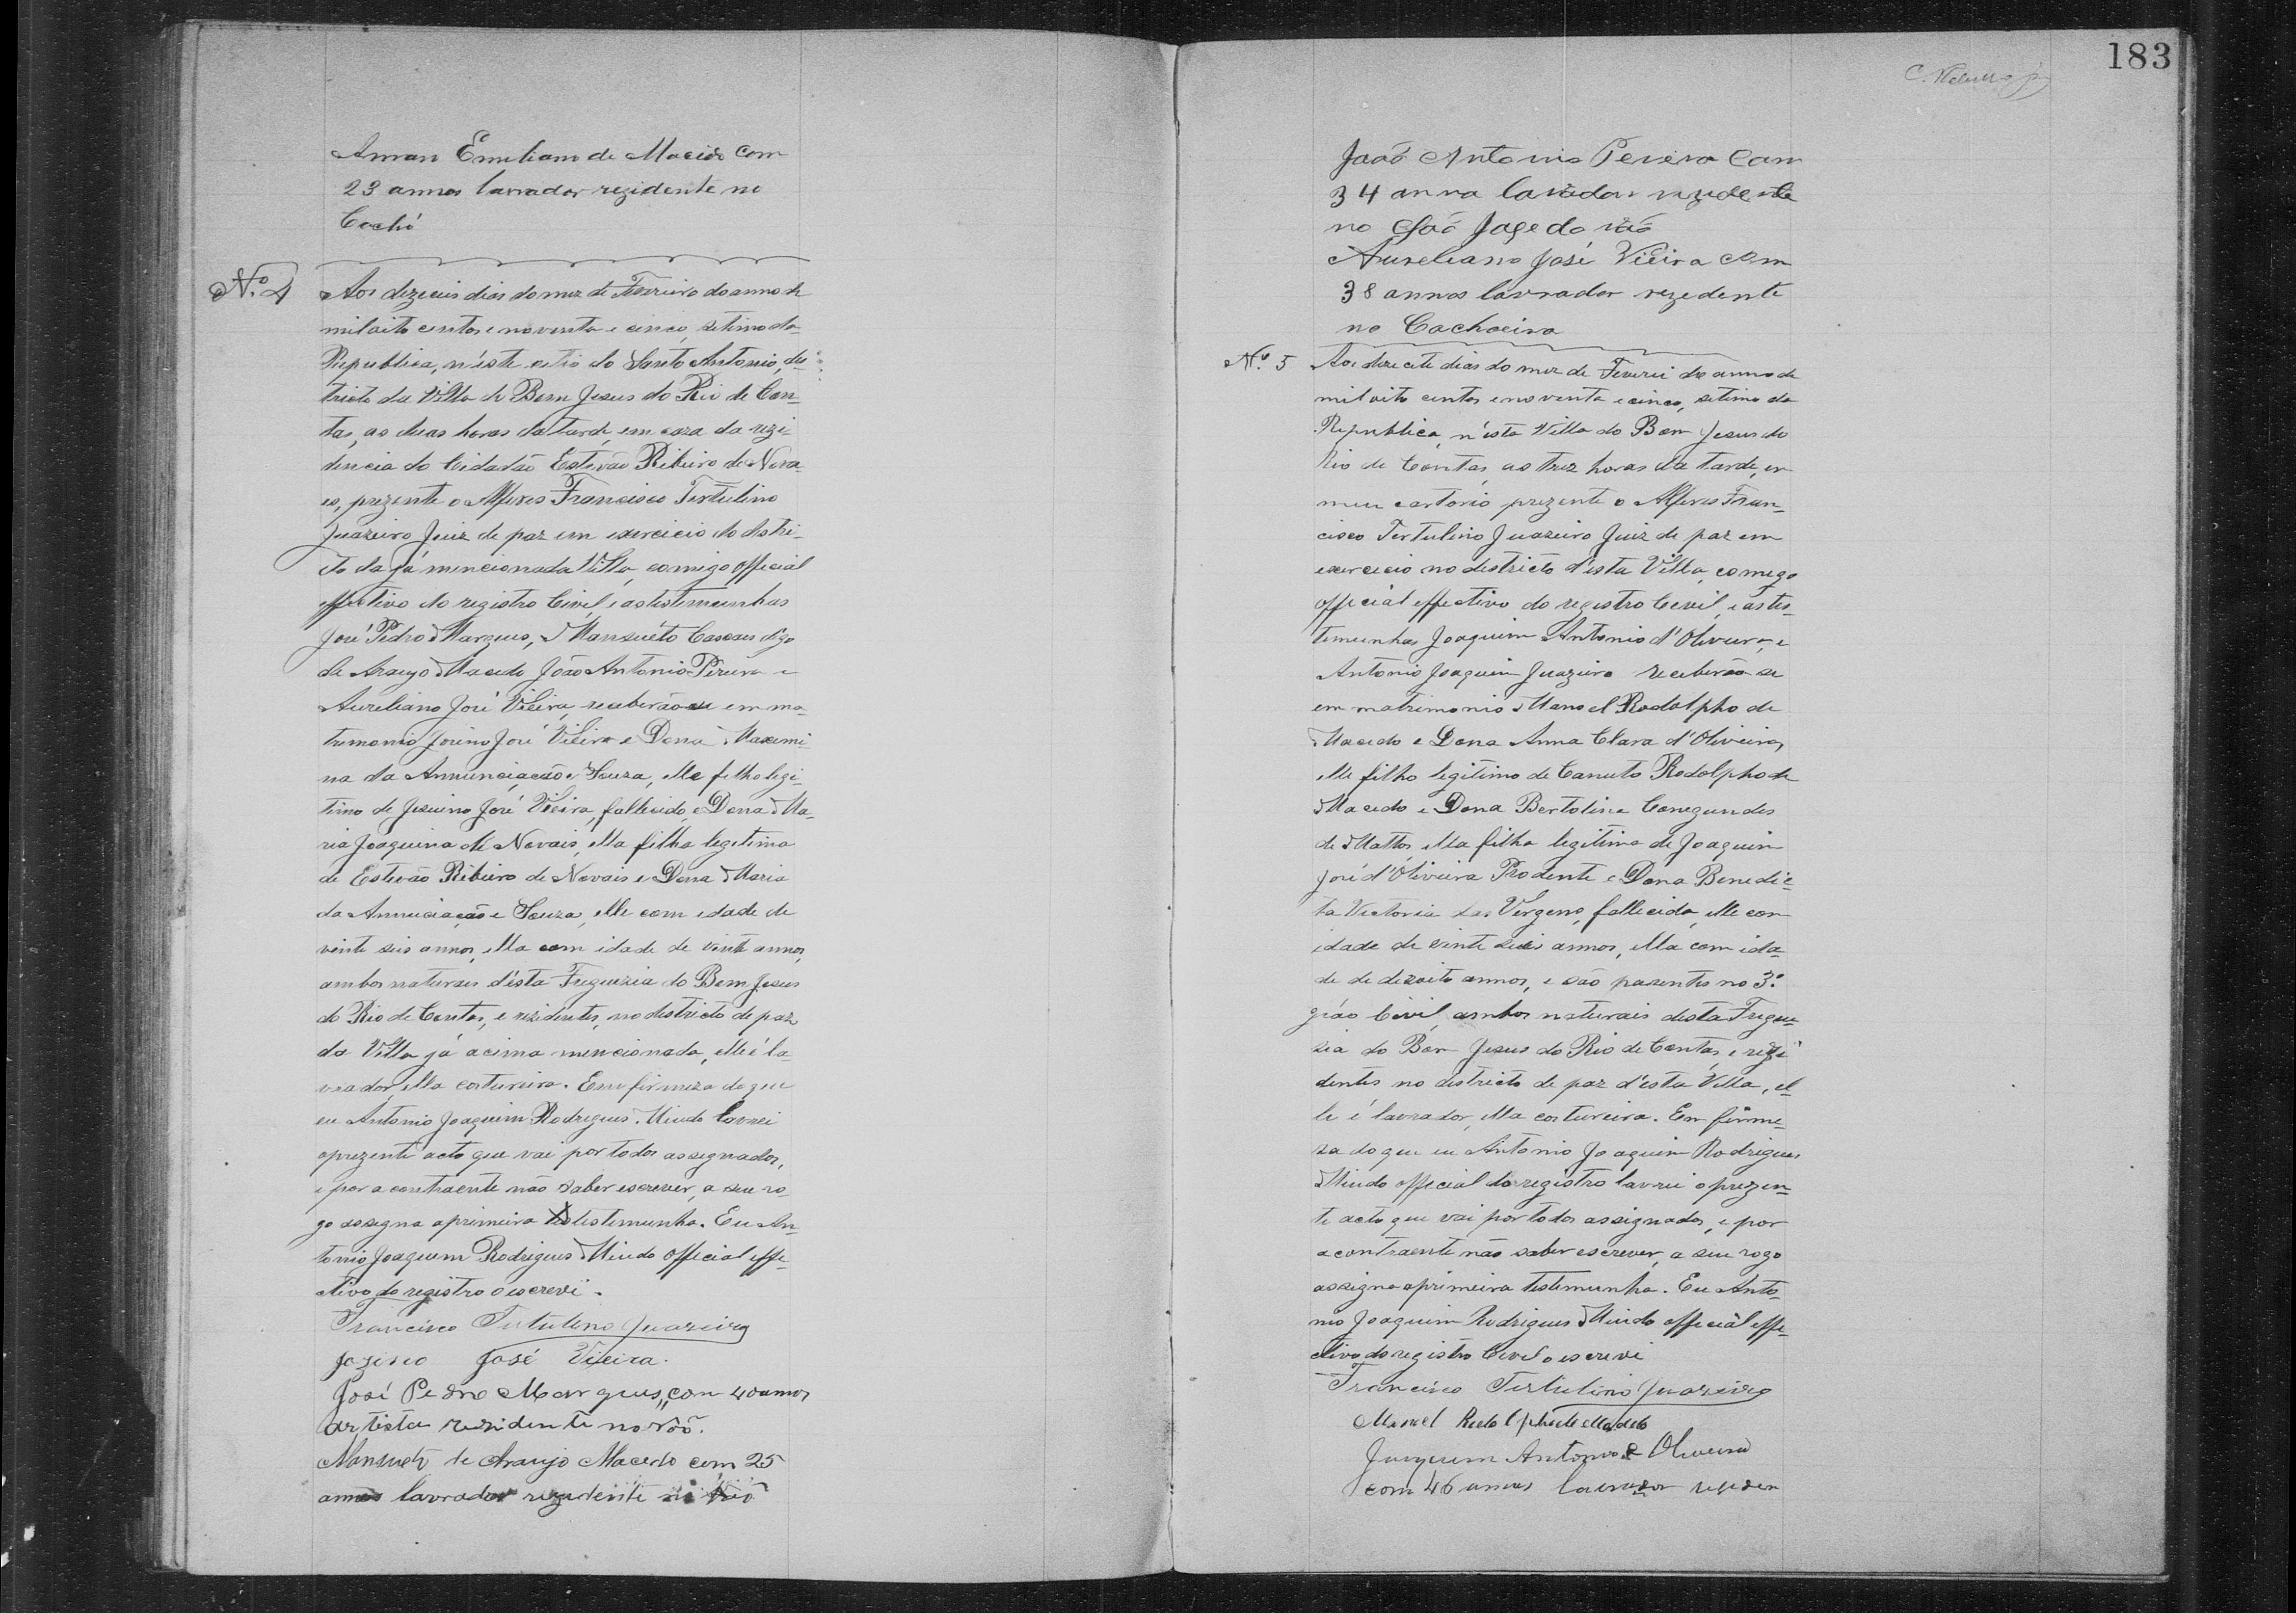 Emiliano de Macedo com
23 annos lavrador rezidente no
Cochó
Nº. 4
Aos dezeceis dias do mez de Fevereiro do anno de
mil oito centos e noventa e cinco, setimo da
Republica, n'este citio do Santo Antonio, dis-
tricto da Villa do Bom Jesus do Rio de Con-
tas, as duas horas da tarde, em caza da rezi-
dencia do Cidadão Estevão Ribeiro de Nova-
es, prezente o Alferes Francisco Tertulino
Juazeiro Juiz de paz em exercicio do distri-
cto da já mencionada Villa, comigo official
effectivo do registro Civil, e as testemunhas
José Pedro Marques, Mansuêto Cascaes digo
de Araujo Macedo João Antonio Pereira e
Aureliano José Vieira, receberão se em ma-
trimonio Jozino José Vieira e Dona Maximi-
na da Annunciação e Souza, elle filho legi-
timo de Jesuino José Vieira, fallecido, e Dona Ma-
ria Joaquina de Novais, ella filha legitima
de Estevão Ribeiro de Novais e Dona Maria
da Annuciação e Souza, elle com edade de
vinte seis annos, ella com idade de vinte annos,
ambos naturaes d'esta Freguezia do Bom Jesus
do Rio de Contas, e rezidentes, no districto de paz
da Villa já acima mencionada, elle é la-
vrador, ella costureira. Em firmeza do que
eu Antonio Joaquim Rodrigues Miudo lavrei
o prezente acto que vai por todos assegnados,
e por a contraente não saber escrever, a seu ro-
go assegna a primeira testemunha. Eu An-
tonio Joaquim Rodrigues Miudo official effe-
ctivo do registro o escrevi.
Francisco Tertulino Juazeiro
Jozino José Vieira.
José Pedro Marques, com 40 annos
artista rezidente no
Mansueto de Araujo Macedo com 25
annos lavrador rezedente no
183
João Antonio Pereira com
34 anna lavrador rezidente
no São José do
Aureliano José Vieira com
38 annos lavrador rezedente
no Cachoeira
Nº. 5
Aos dezecete dias do mez de Feverei do anno de
mil oito centos e noventa e cinco, setimo da
Republica, n'esta Villa do Bom Jesus do
Rio de Contas, as trez horas da tarde, em
meu cartorio prezente o Alferes Fran-
cisco Tertulino Juazeiro Juiz de paz em
exercicio no destricto d'esta Villa, comego
official effectivo do registro Cevil, e as tes-
temunhas Joaquim Antonio d'Oliveira, e
Antonio Joaquim Juazeiro receberão se
em matrimonio Manoel Rodolpho de
Macedo e Dona Anna Clara d'Oliveira,
elle filho legitimo de Canuto Rodolpho de
Macedo e Dona Bertolina Conegundes
de Mattos, ella filha legitima de Joaquim
José d'Oliveira Prodente e Dona Benedic-
ta Victoria das Virgens, fallecida, elle com
idade de vinte seis annos, ella com ida-
de de dezoito annos, e são parentes no 3º.
gráo Civil, ambos naturais desta Fregue-
zia do Bom Jesus do Rio de Contas, e rezi-
dentes no destricto de paz d'esta Villa, el-
le é lavrador, ella costureira. Em firme-
za do que eu Antonio Joaquim Rodrigues
Miudo official do registro lavrei o prezen-
te acto que vai por todos assignados, e por
a contraente não saber escrever, a seu rogo
assigna a primeira testemunha. Eu Anto-
nio Joaquim Rodrigues Miudo official effe-
ctivo do registro Cevel o escrevi
Francisco Tertulino Juazeiro
Manoel Rodolpho de Macedo
Joaquim Antonio de Oliveira
com 46 annos lavrador rezeden